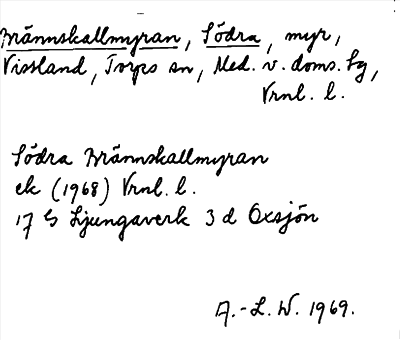 Brännskallmyran, Södra, myr,
Vissland, Torps sn, Med. v. doms. sg,
Vrnl. l.
Södra Brännskallmyran
ek (1968) Vrnl. l.
17 G Ljungaverk 3 d Oxsjön
A.-L. W. 1969.